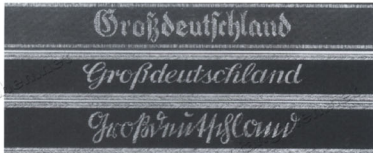 Großdeutschland
Großdeutschland
Großdeutschland